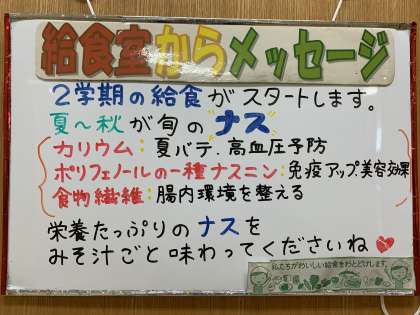 給食室からメッセージ
2学期の給食がスタートします。
夏～秋が旬のナス
カリウム：夏バテ．高血圧予防
ポリフェノールの一種ナスニン：免疫アップ．美容効果
食物繊維：腸内環境を整える
栄養たっぷりのナスを
みそ汁ごと味わってくださいね
私たちがおいしい給食をおとどけします。